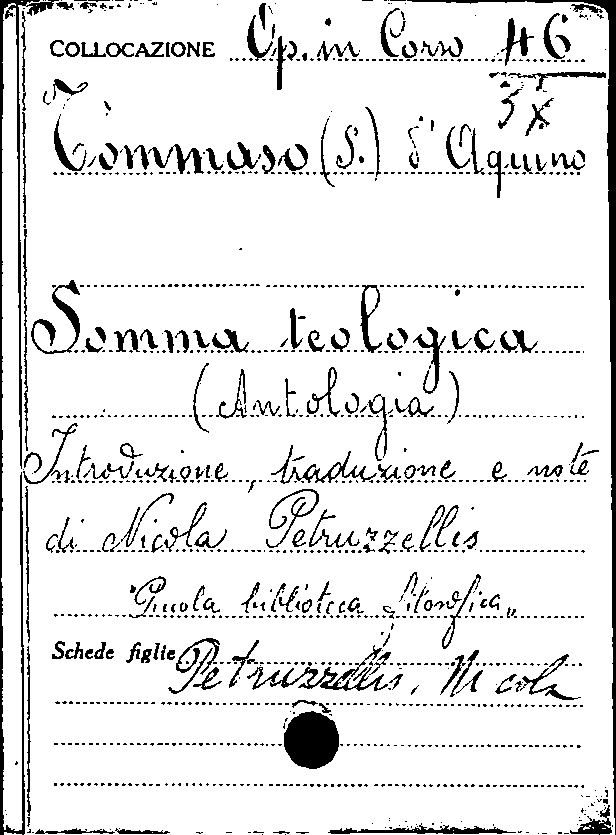 COLLOCAZIONE Op. in Corso 46
3x
Tommaso (S.) d'Aquino
Somma teologica
(Antologia)
Introduzione, traduzione e note
di Nicola Petruzzellis
"Piccola biblioteca filosofica"
Schede figlie Petruzzellis, Nicola